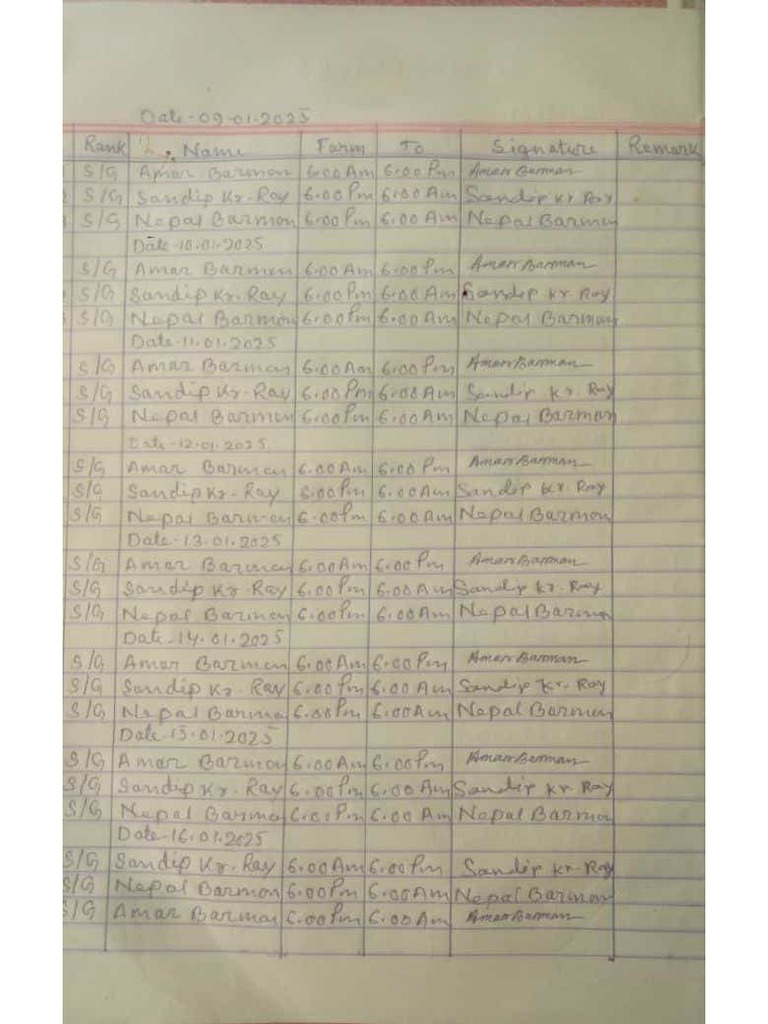 Date-09-01-2025
Rank Name Farm To Signature Remark
S/G Amar Barmon 6.00 Am 6.00 Pm Amar Barman
S/G Sandip Kr. Ray 6.00 Pm 6.00 Am Sandip Kr Ray
S/G Nepal Barmon 6.00 Pm 6.00 Am Nepal Barmon
Date-10.01.2025
S/G Amar Barmon 6.00 Am 6.00 Pm Amar Barman
S/G Sandip Kr. Ray 6.00 Pm 6.00 Am Sandip Kr Ray
S/G Nepal Barmon 6.00 Pm 6.00 Am Nepal Barmon
Date-11.01.2025
S/G Amar Barmon 6.00 Am 6.00 Pm Amar Barman
S/G Sandip Kr. Ray 6.00 Pm 6.00 Am Sandip Kr. Ray
S/G Nepal Barmon 6.00 Pm 6.00 Am Nepal Barmon
Date-12.01.2025
S/G Amar Barmon 6.00 Am 6.00 Pm Amar Barman
S/G Sandip Kr. Ray 6.00 Pm 6.00 Am Sandip Kr. Ray
S/G Nepal Barmon 6.00 Pm 6.00 Am Nepal Barmon
Date-13.01.2025
S/G Amar Barmon 6.00 Am 6.00 Pm Amar Barman
S/G Sandip Kr. Ray 6.00 Pm 6.00 Am Sandip Kr. Ray
S/G Nepal Barmon 6.00 Pm 6.00 Am Nepal Barmon
Date-14.01.2025
S/G Amar Barmon 6.00 Am 6.00 Pm Amar Barman
S/G Sandip Kr. Ray 6.00 Pm 6.00 Am Sandip Kr. Ray
S/G Nepal Barmo 6.00 Pm 6.00 Am Nepal Barmon
Date-15.01.2025
S/G Amar Barmon 6.00 Am 6.00 Pm Amar Barman
S/G Sandip Kr. Ray 6.00 Pm 6.00 Am Sandip Kr. Ray
S/G Nepal Barmo 6.00 Pm 6.00 Am Nepal Barmon
Date-16.01.2025
S/G Sandip Kr. Ray 6.00 Am 6.00 Pm Sandip Kr. Ray
S/G Nepal Barmon 6.00 Pm 6.00 Am Nepal Barmon
S/G Amar Barmon 6.00 Pm 6.00 Am Amar Barman